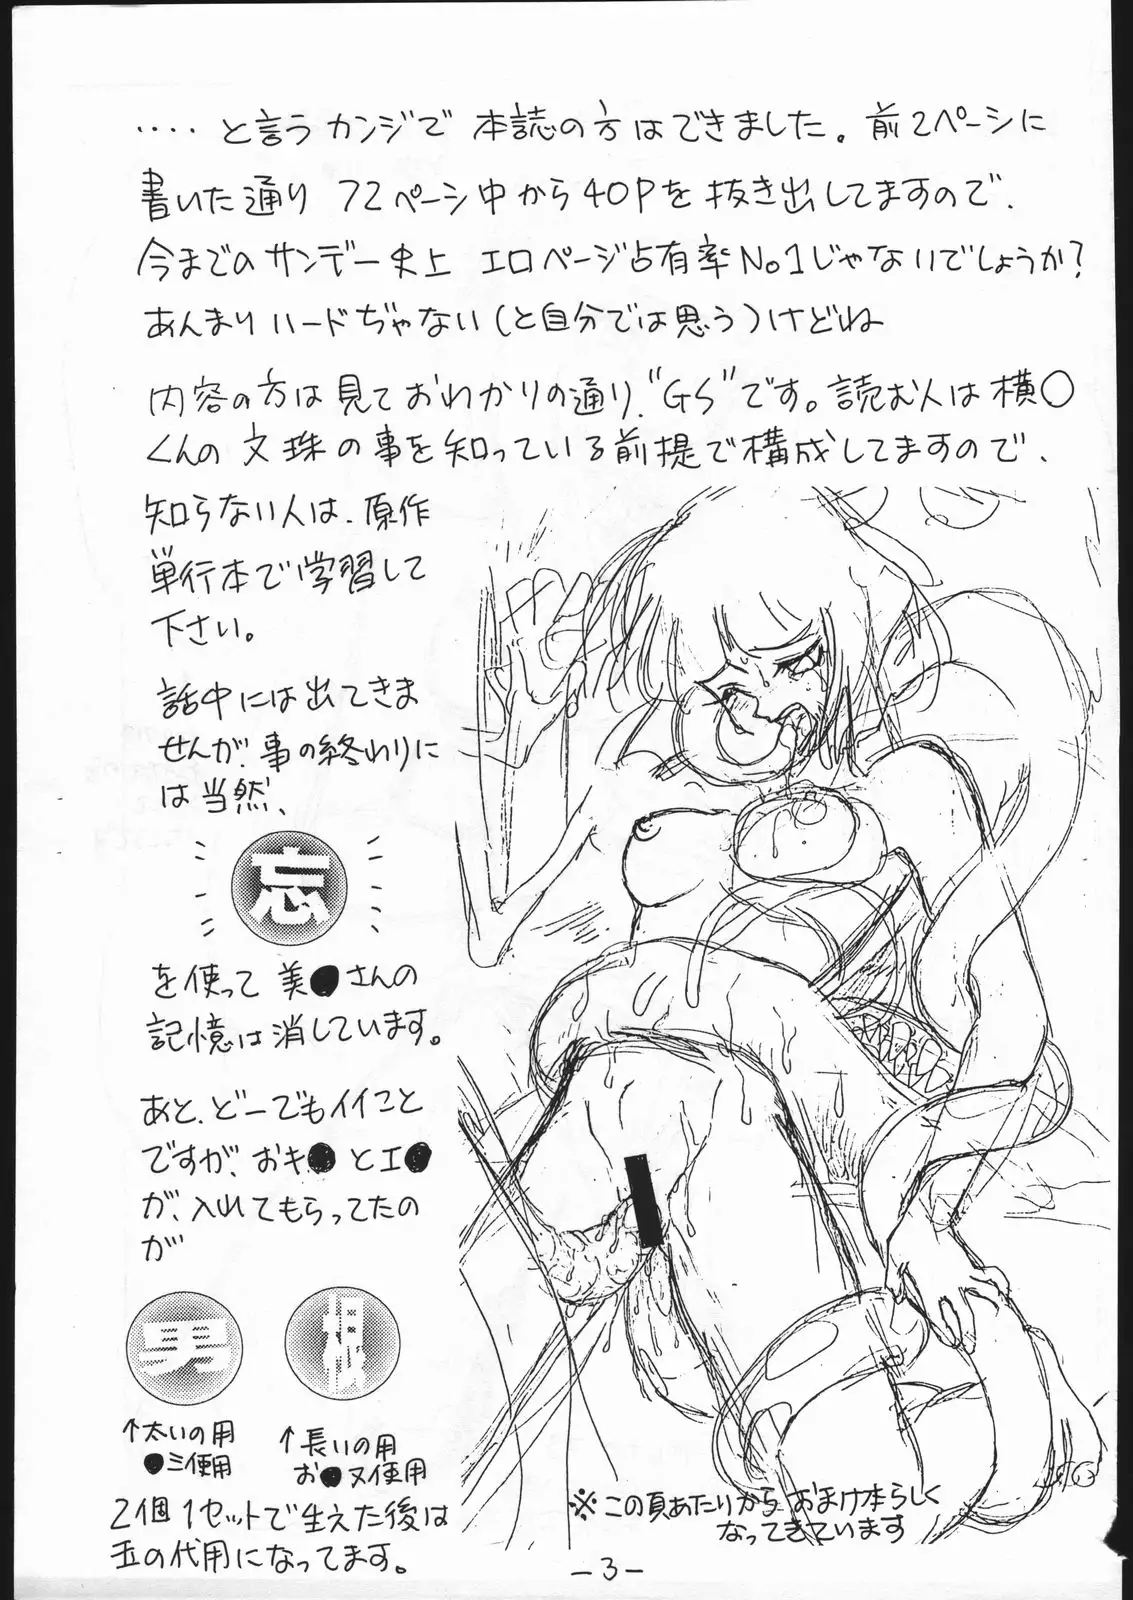 ‥‥と言うカンジで本誌の方はできました。前2ページに
書いた通り 72ページ中から40Pを抜き出してますので、
今までのサンデー史上 エロページ占有率No.1じゃないでしょうか?
あんまりハードぢゃない(と自分では思う)けどね
内容の方は見ておわかりの通り、"GS"です。読む人は横○
くんの文珠の事を知っている前提で構成してますので、
知らない人は、原作
単行本で学習して
下さい。
話中には出てきま
せんが、事の終わりに
は当然、
忘
を使って 美●さんの
記憶は消しています。
あと、どーでもイイこと
ですが、おキ●とエ●
が、入れてもらってたの
が
男 根
↑太いの用
●ミ使用
↑長いの用
お●ヌ使用
2個1セットで生えた後は
玉の代用になってます。
※この頁あたりから おまけ本らしく
なってきています
-3-